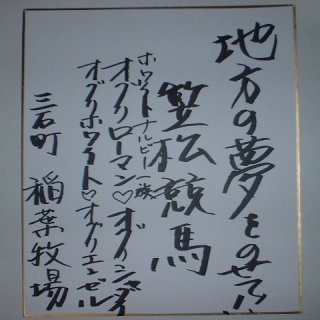 地方の夢をのせて
笠松競馬
ホワイトナルビー一族
オグリローマン♡オグリキャップ
オグリホワイト♡オグリエンゼル
三石町 稲葉牧場